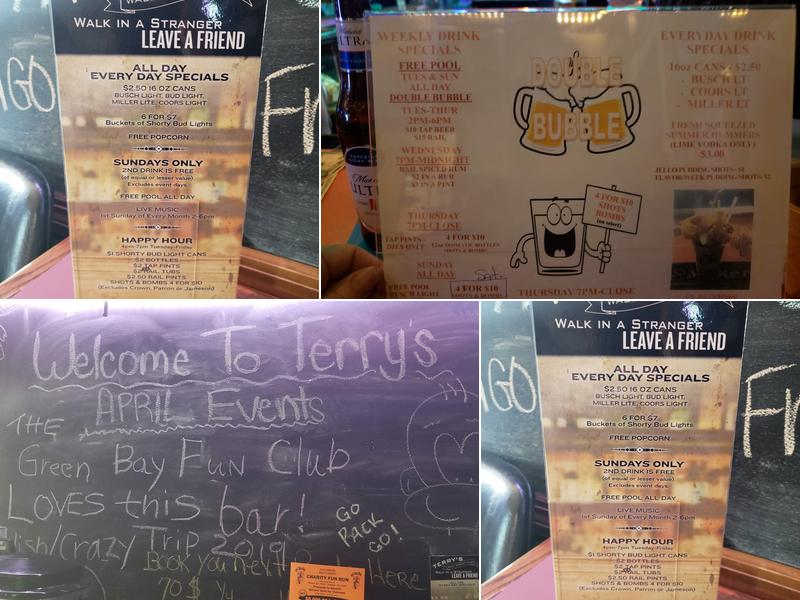 WALK IN A STRANGER
LEAVE A FRIEND
ALL DAY
EVERY DAY SPECIALS
$2.50 16 OZ CANS
BUSCH LIGHT, BUD LIGHT,
MILLER LITE, COORS LIGHT
6 FOR $7
Buckets of Shorty Bud Lights
FREE POPCORN
SUNDAYS ONLY
2ND DRINK IS FREE
(of equal or lesser value)
Excludes event days.
FREE POOL ALL DAY
LIVE MUSIC
1st Sunday of Every Month 2-6pm
HAPPY HOUR
4pm-7pm Tuesday-Friday
$1 SHORTY BUD LIGHT CANS
$2 BOTTLES
$2 TAP PINTS
RAIL TUBS
$2.50 RAIL PINTS
SHOTS & BOMBS 4 FOR $10
(Excludes Crown, Patron or Jameson)
GO
WEEKLY DRINK
SPECIALS
FREE POOL
TUES & SUN
ALL DAY
DOUBLE BUBBLE
TUES-THUR
2PM-6PM
$10 TAP BEER
$15 RAIL
WEDNESDAY
7PM-MIDNIGHT
RAIL SPICED RUM
THURSDAY
7PM-CLOSE
TAP PINTS
4 FOR $10
12oz DOMESTIC BOTTLES
SHOTS & BOMBS
SUNDAY
ALL DAY
FREE POOL
4 FOR $10
SHOTS & BOMBS
DOUBLE
BUBBLE
4 FOR $10
SHOTS
BOMBS
(on select)
THURSDAY 7PM-CLOSE
EVERYDAY DRINK
SPECIALS
16oz CANS - $2.50
BUSCH LT
COORS LT
MILLER LT
FRESH SQUEEZED
SUMMER HUMMERS
(LIME VODKA ONLY)
$3.00
JELLO/PUDDING SHOTS - $1
FLAVOR/WEEK PUDDING SHOTS - $2
ULTRA
Welcome To Terry's
APRIL Events
THE
Green Bay Fun Club
LOVES this bar!
ish/Crazy Trip 2019
GO
PACK
GO!
Book You Next
Here
CHARITY FUN RUN
TERRY'S
LEAVE A FRIEND
WALK IN A STRANGER
LEAVE A FRIEND
ALL DAY
EVERY DAY SPECIALS
$2.50 16 OZ CANS
BUSCH LIGHT, BUD LIGHT,
MILLER LITE, COORS LIGHT
6 FOR $7
Buckets of Shorty Bud Lights
FREE POPCORN
SUNDAYS ONLY
2ND DRINK IS FREE
(of equal or lesser value)
Excludes event days.
FREE POOL ALL DAY
LIVE MUSIC
1st Sunday of Every Month 2-6pm
HAPPY HOUR
4pm-7pm Tuesday-Friday
$1 SHORTY BUD LIGHT CANS
$2 BOTTLES
$2 TAP PINTS
RAIL TUBS
$2.50 RAIL PINTS
SHOTS & BOMBS 4 FOR $10
(Excludes Crown, Patron or Jameson)
GO